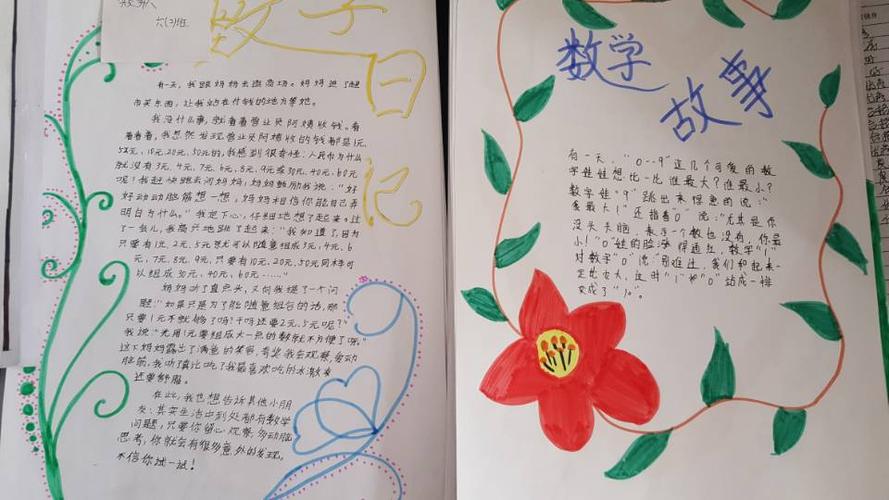 六(3)班
数学
日
记
有一天，我跟妈妈去逛商场。妈妈进了超
市买东西，让我站在付钱的地方等她。
我没什么事，就看着营业员阿姨收钱。看
着看着，我忽然发现营业员阿姨收的钱都是1元、
5元、10元、20元、50元的，我感到很奇怪：人民币为什么
就没有3元、4元、7元、6元、8元、9元或30元、40元、60元
呢！我赶快跑去问妈妈，妈妈鼓励我说："好
好动动脑筋想一想，妈妈相信你能自己弄
明白为什么。"我定下心，仔细地想了起来。过
了一会儿，我高兴地跳了起来："我知道了，因为
只要有1元、2元、5元就可以随意组成3元、4元、6
元、7元、8元、9元，只要有10元、20元、50元同样可
以组成30元、40元、60元……"
妈妈听了直点头，又向我提了一个问
题："如果只是为了能随意组合的话，那
只要1元不就够了吗？干吗还要2元、5元呢？"
我说："光用1元要组成大一点的数就不方便了呀。"
这下妈妈露出了满意的笑容，夸奖我会观察，爱动
脑筋，我听了真比吃了我最喜欢吃的冰激凌
还要舒服。
在此，我也想告诉其他小朋
友：其实生活中到处都有数学
问题，只要你留心观察，多动脑
思考，你就会有很多意外的发现，
不信你试一试！
数学
故事
有一天，"0--9"这几个可爱的数
字娃娃想比一比谁最大？谁最小？
数字娃"9"跳出来得意的说："
我最大！"还指着"0"说："尤其是你
没头没脑，表示一个数也没有，你最
小！"0"娃的脸涨得通红，数字"1"
对数字"0"说"别难过，我们和起来一
定比它大，这时"1"和"0"站成一排
变成了"10"。